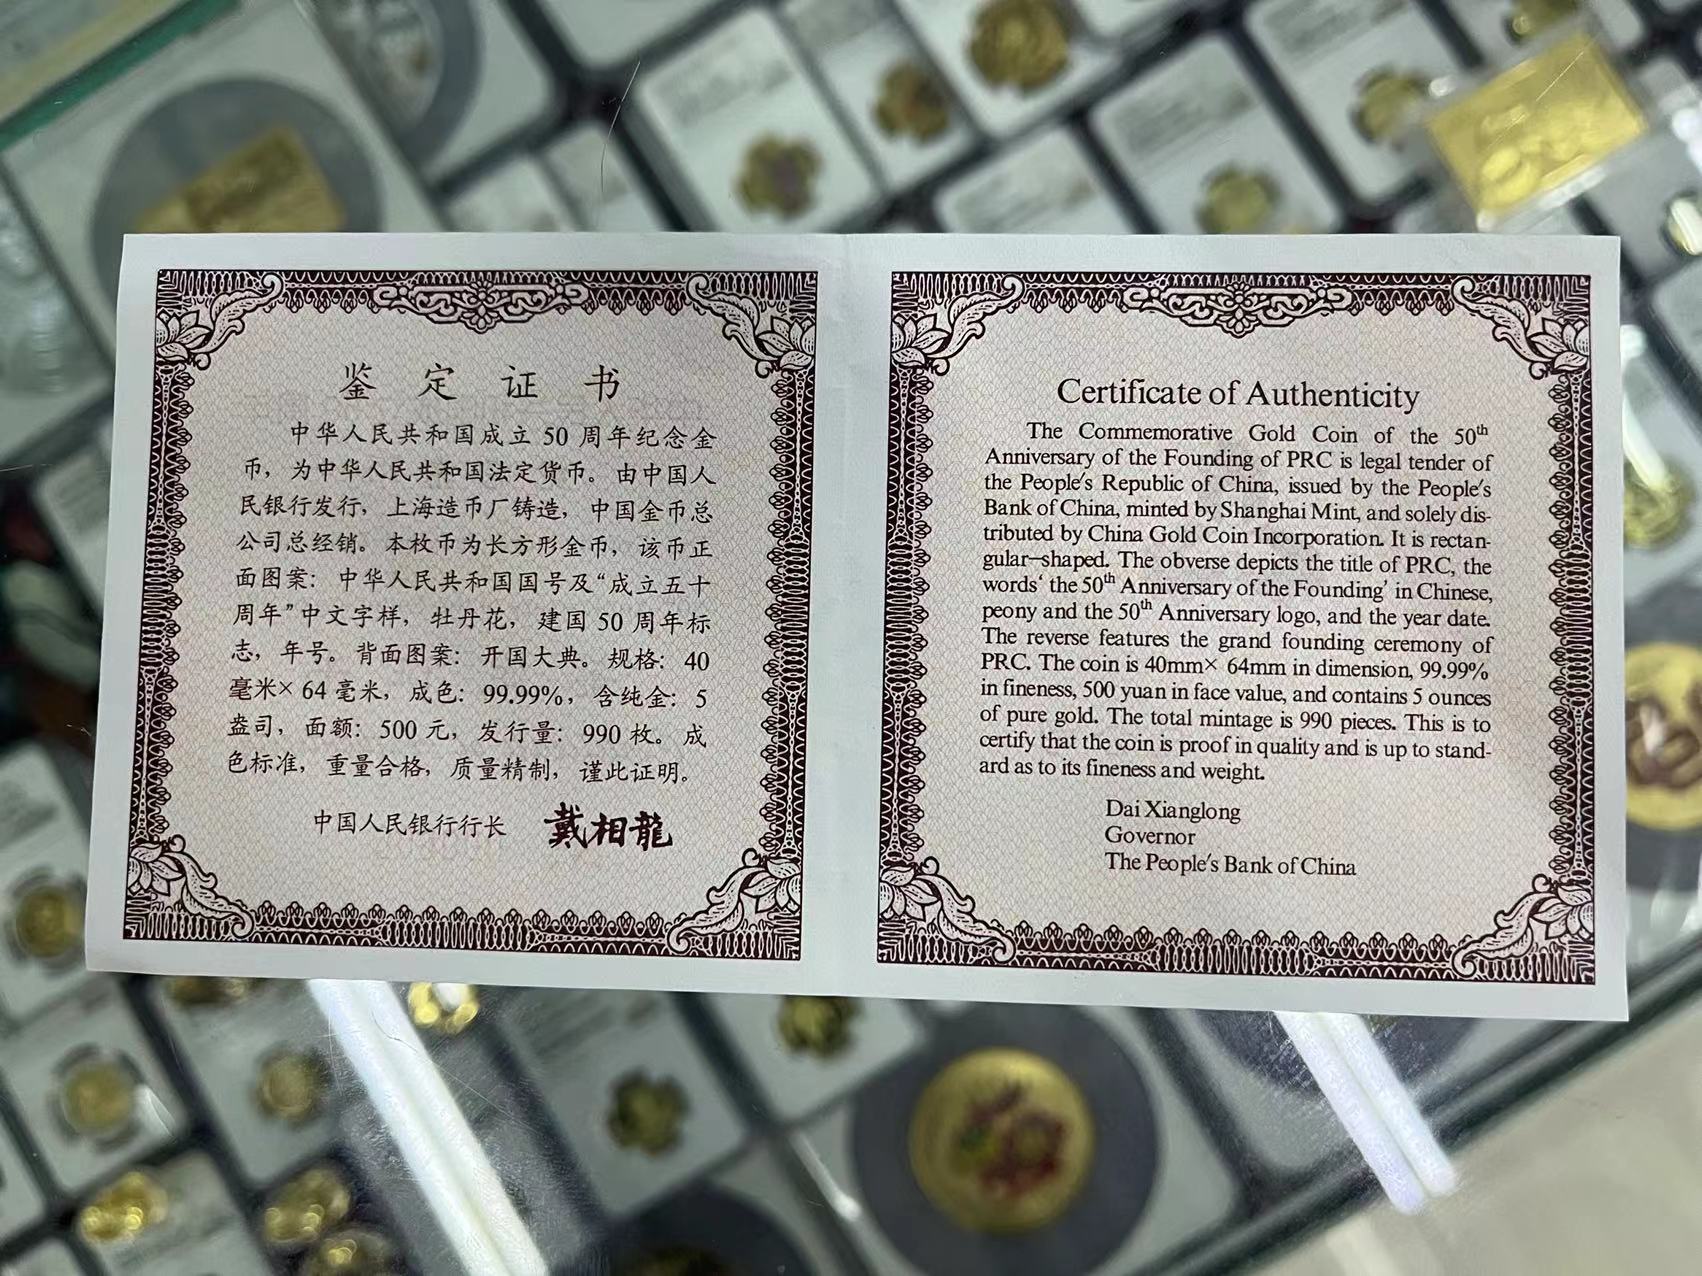 鉴定证书
中华人民共和国成立 50 周年纪念金
币，为中华人民共和国法定货币。由中国人
民银行发行，上海造币厂铸造，中国金币总
公司总经销。本枚币为长方形金币，该币正
面图案：中华人民共和国国号及“成立五十
周年”中文字样，牡丹花，建国 50 周年标
志，年号。背面图案：开国大典。规格：40
毫米× 64 毫米，成色：99.99%，含纯金：5
盎司，面额：500 元，发行量：990 枚。成
色标准，重量合格，质量精制，谨此证明。
中国人民银行行长 戴相龍
Certificate of Authenticity
The Commemorative Gold Coin of the 50th
Anniversary of the Founding of PRC is legal tender of
the People's Republic of China, issued by the People's
Bank of China, minted by Shanghai Mint, and solely dis-
tributed by China Gold Coin Incorporation. It is rectan-
gular-shaped. The obverse depicts the title of PRC, the
words‘ the 50th Anniversary of the Founding’ in Chinese,
peony and the 50th Anniversary logo, and the year date.
The reverse features the grand founding ceremony of
PRC. The coin is 40mm× 64mm in dimension, 99.99%
in fineness, 500 yuan in face value, and contains 5 ounces
of pure gold. The total mintage is 990 pieces. This is to
certify that the coin is proof in quality and is up to stand-
ard as to its fineness and weight.
Dai Xianglong
Governor
The People's Bank of China